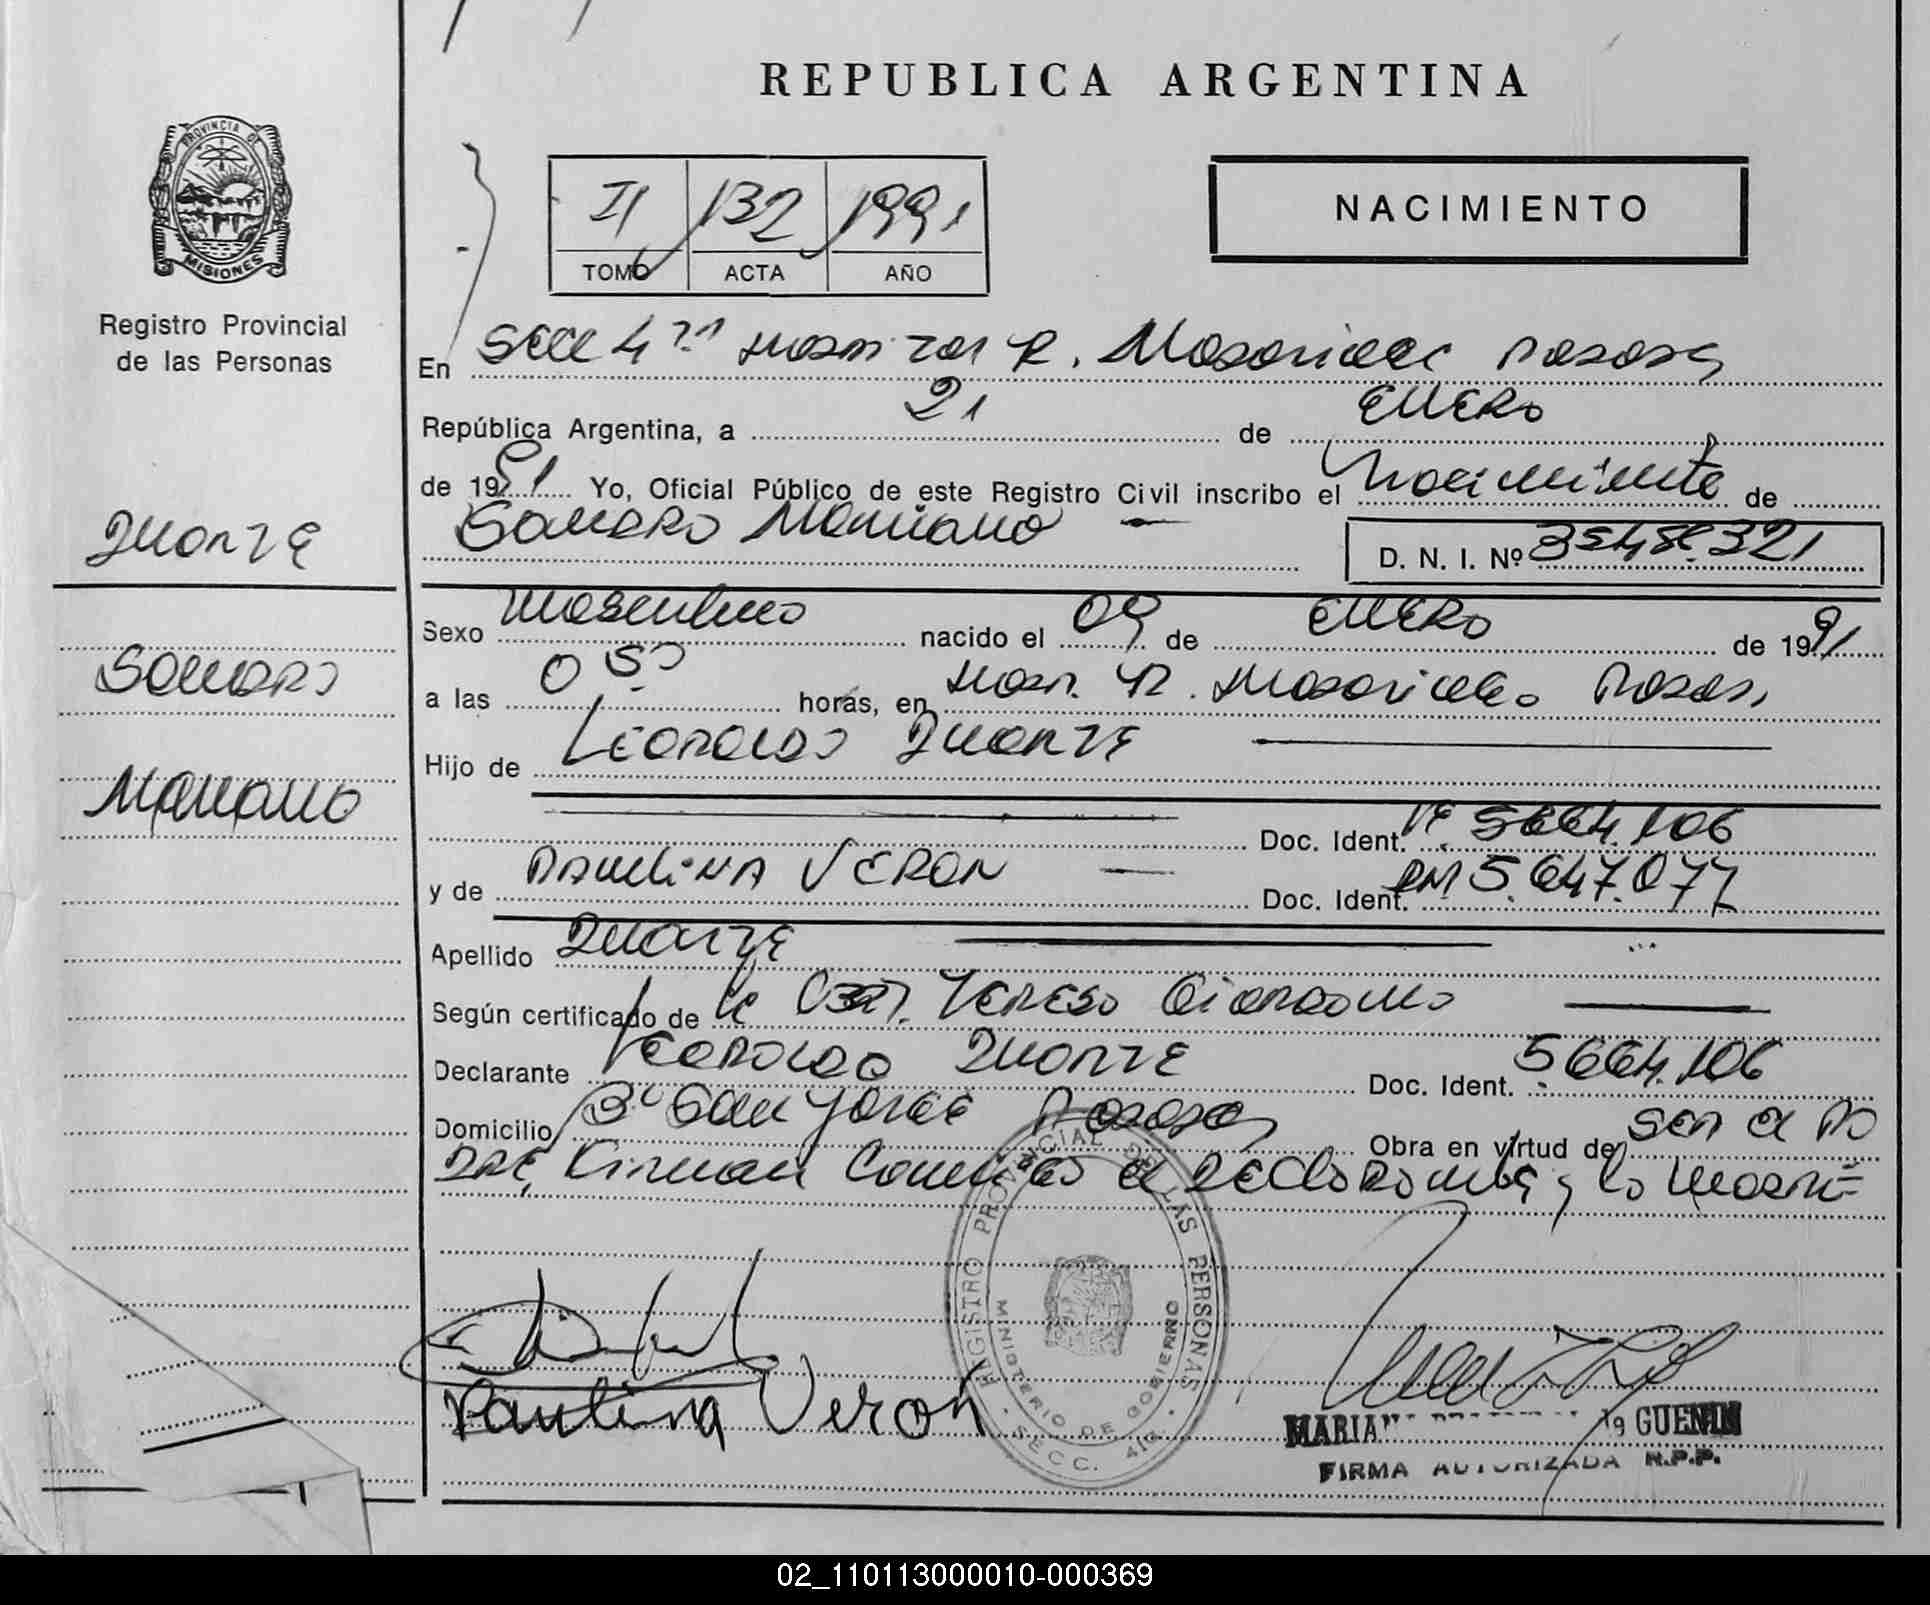 REPUBLICA ARGENTINA
PROVINCIA DE
MISIONES
Registro Provincial
de las Personas
II 132 1991
TOMO ACTA AÑO
NACIMIENTO
En Secc 4ta R. Posadas
República Argentina, a 21 de ENERO
de 1991 Yo, Oficial Público de este Registro Civil inscribo el Nacimiento de
SANDRO Mariano
D. N. I. Nº
DUARTE
SANDRO
Mariano
Sexo masculino nacido el 09 de ENERO de 1991
a las 0 50 horas, en Hosp. R. Posadas
Hijo de LEOPOLDO DUARTE
Doc. Ident. 5664.106
y de PAULINA VERON Doc. Ident. 5.647.077
Apellido DUARTE
Según certificado de
Declarante LEOPOLDO DUARTE Doc. Ident. 5664.106
Domicilio Bº San JORGE Posadas Obra en virtud de SER el PA
DRE, Firman Conmigo el DEClarante y la Madre
Paulina Veron
REGISTRO PROVINCIAL DE LAS PERSONAS
MINISTERIO DE GOBIERNO
SECC. 4ta
GUENIN
FIRMA AUTORIZADA R.P.P.
02_110113000010-000369